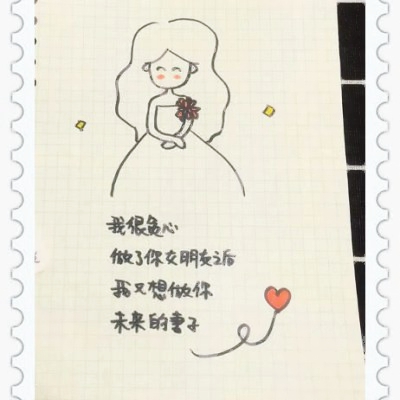 我很贪心
做了你女朋友之后
我又想做你
未来的妻子